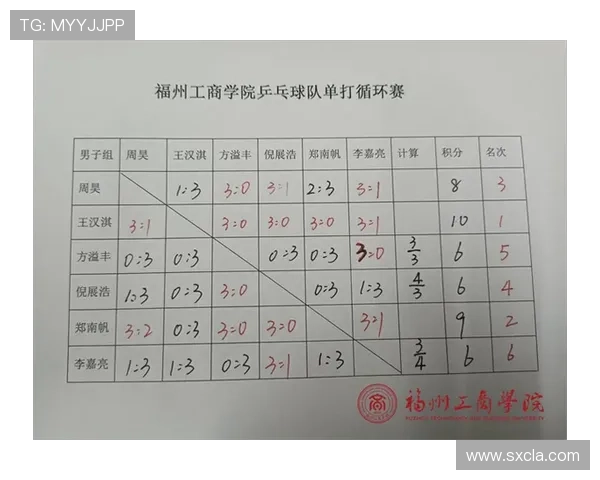 TG: MYYJJPP
福州工商学院乒乓球队单打循环赛
男子组 周昊 王汉淇 方溢丰 倪展浩 郑南帆 李嘉亮 计算 积分 名次
周昊 1:3 3:0 3:1 2:3 3:1 8 3
王汉淇 3:1 3:0 3:0 3:0 3:1 10 1
方溢丰 0:3 0:3 0:3 0:3 3:0 3/3 6 5
倪展浩 1:3 0:3 3:0 0:3 1:3 4/3 6 4
郑南帆 3:2 0:3 3:0 3:0 3:1 9 2
李嘉亮 1:3 1:3 0:3 3:1 1:3 3/4 6 6
福州工商学院
www.sxcla.com